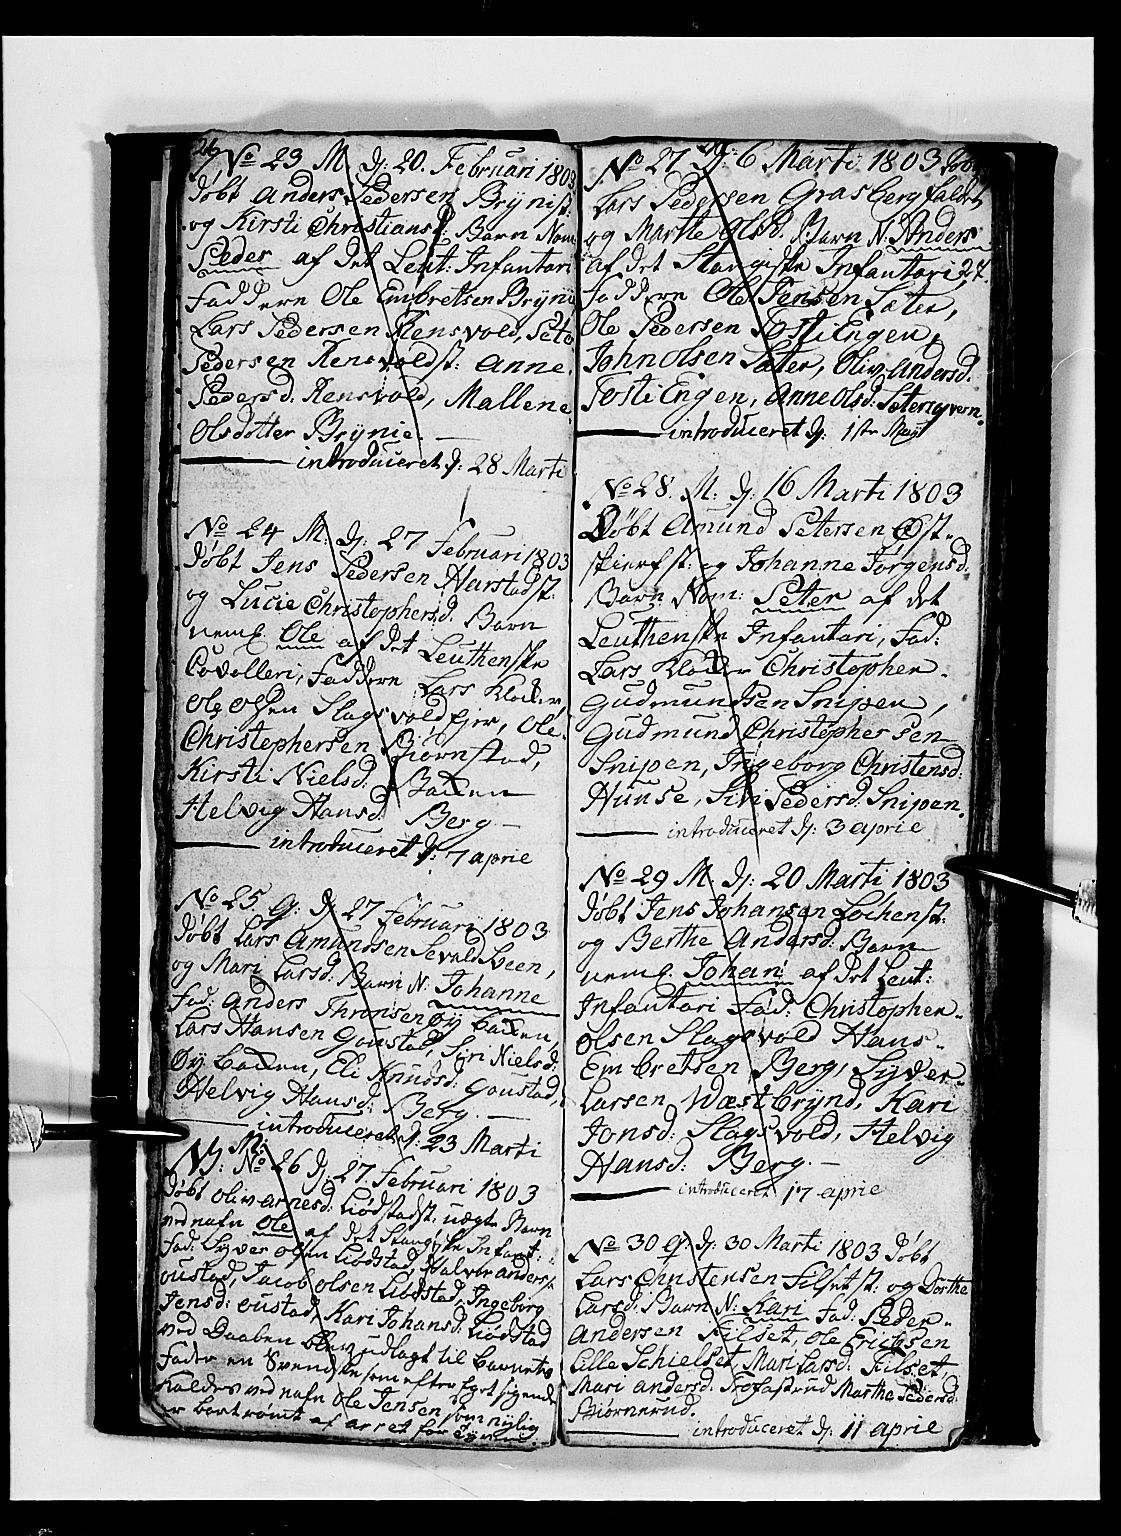 26
No 23 M. d: 20. Februari 1803
døbt Anders Pedersen Brÿnis:
og Kirsti Christiansd. Barn Nom
Peder af det Leut: Infantari
faddern Ole Embretsen Brÿni
Lars Pedersen Rensvold, Peto
Pedersen Rensvoldst: Anne
Pedersd: Rensvold, Mallene
Olsdotter Brÿnie.
introduceret d: 28 Marti
No 24 M: d: 27 Februari 1803
døbt Jens Pedersen Harstadst:
og Lucie Christophersd. Barn
neml. Ole af det Leuthenske
Cavalleri, faddern Lars Klocker
Ole Olsen Slagsvold Ejer, Ole
Christophersen Biørnstad,
Kirsti Nielsd: Backen
Helvig Hansd: Berg
introduceret d: 7 aprie
No 25 q: d. 27 februari 1803
døbt Lars Amundsen Sevald Eeen,
og Mari Larsd: Barn N: Johanne
fad: Anders Thronsen Øÿ backen,
Lars Hansen Goustad, Siri Nielsd:
Øÿ backen, Eli Knudsd: Goustad,
Helvig Hansd: Berg.
introduceret d. 23 Marti
NB: M: No 26 d: 27 Februari 1803
døbt Olivarnesd: Liødstadst. uægte Barn
ved nafn Ole af det Stangiske Infant:
fad: Syver Olsen Liødstad, Halvor Anders:
oustad, Jacob Olsen Liødstad, Ingeborg
Jensd: oustad, Kari Johansd: Liødstad
ved Daaben blev udlagt til barnets
fader en Svendske som efter Eget sigende
kaldes ved nafn Ole Jensen som nylig
er bortrømt af arret for
No 27 M: 6 Marti 1803 døbt
Lars Pedersen Grasberg
og Marthe Olsd. Barn N. Anders
af det Stangiske Infantari 27.
faddern Ole Jensen Sæter,
Ole Pedersen Tosti Engen,
John Olsen Sæter, Oliv. Andersd:
Tosti Engen, Anne Olsd: Sætersqvern.
introduceret d: 1ste Maÿ
No 28. M: d: 16 Marti 1803
Døbt Amund Petersen Øst-
skierfst: og Johanne Jørgensd.
Barn Nom: Peter af det
Leuthenske Infantari, Fad:
Lars Klocker Christopher
Gudmundsen Snipen,
Gudmund Christophersen
Snipen, Ingeborg Christensd:
Huuse, Siri Pedersd. Snipen.
introduceret d: 3 aprie
No 29 M. d: 20 Marti 1803
døbt Jens Johansen Lochenst:
og Berthe Andersd: Barn
neml. Johan af det Leut:
Infantari Fad: Christopher
Olsen Slagsvold Hans
Embretsen Berg, Syver
Larsen Wæstbrÿnd, Kari
Jonsd: Slagsvold, Helvig
Hansd: Berg.
introduceret 17 aprie
No 30 q: d: 30 Marti 1803 døbt
Lars Christensen Filset st: og Dorthe
Larsd: Barn N: Kari Fad: Peder
Andersen Filset, Ole Ericksen
Lille Schielset, Mari Larsd: Filset,
Mari Andersd: Trofastrud Marthe Pedersd:
Biørnerud.
introduceret d: 11 aprie